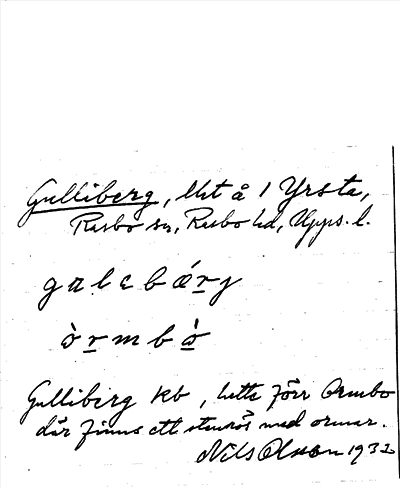 Gulliberg, lht å 1 Yrsta,
Rasbo sn, Rasbo hd, Upps. l.
galebǽrj
òrmbò
Gulliberg kb, hette förr Ormbo
där finns ett stenrös med ormar.
Nils Olsson 1932